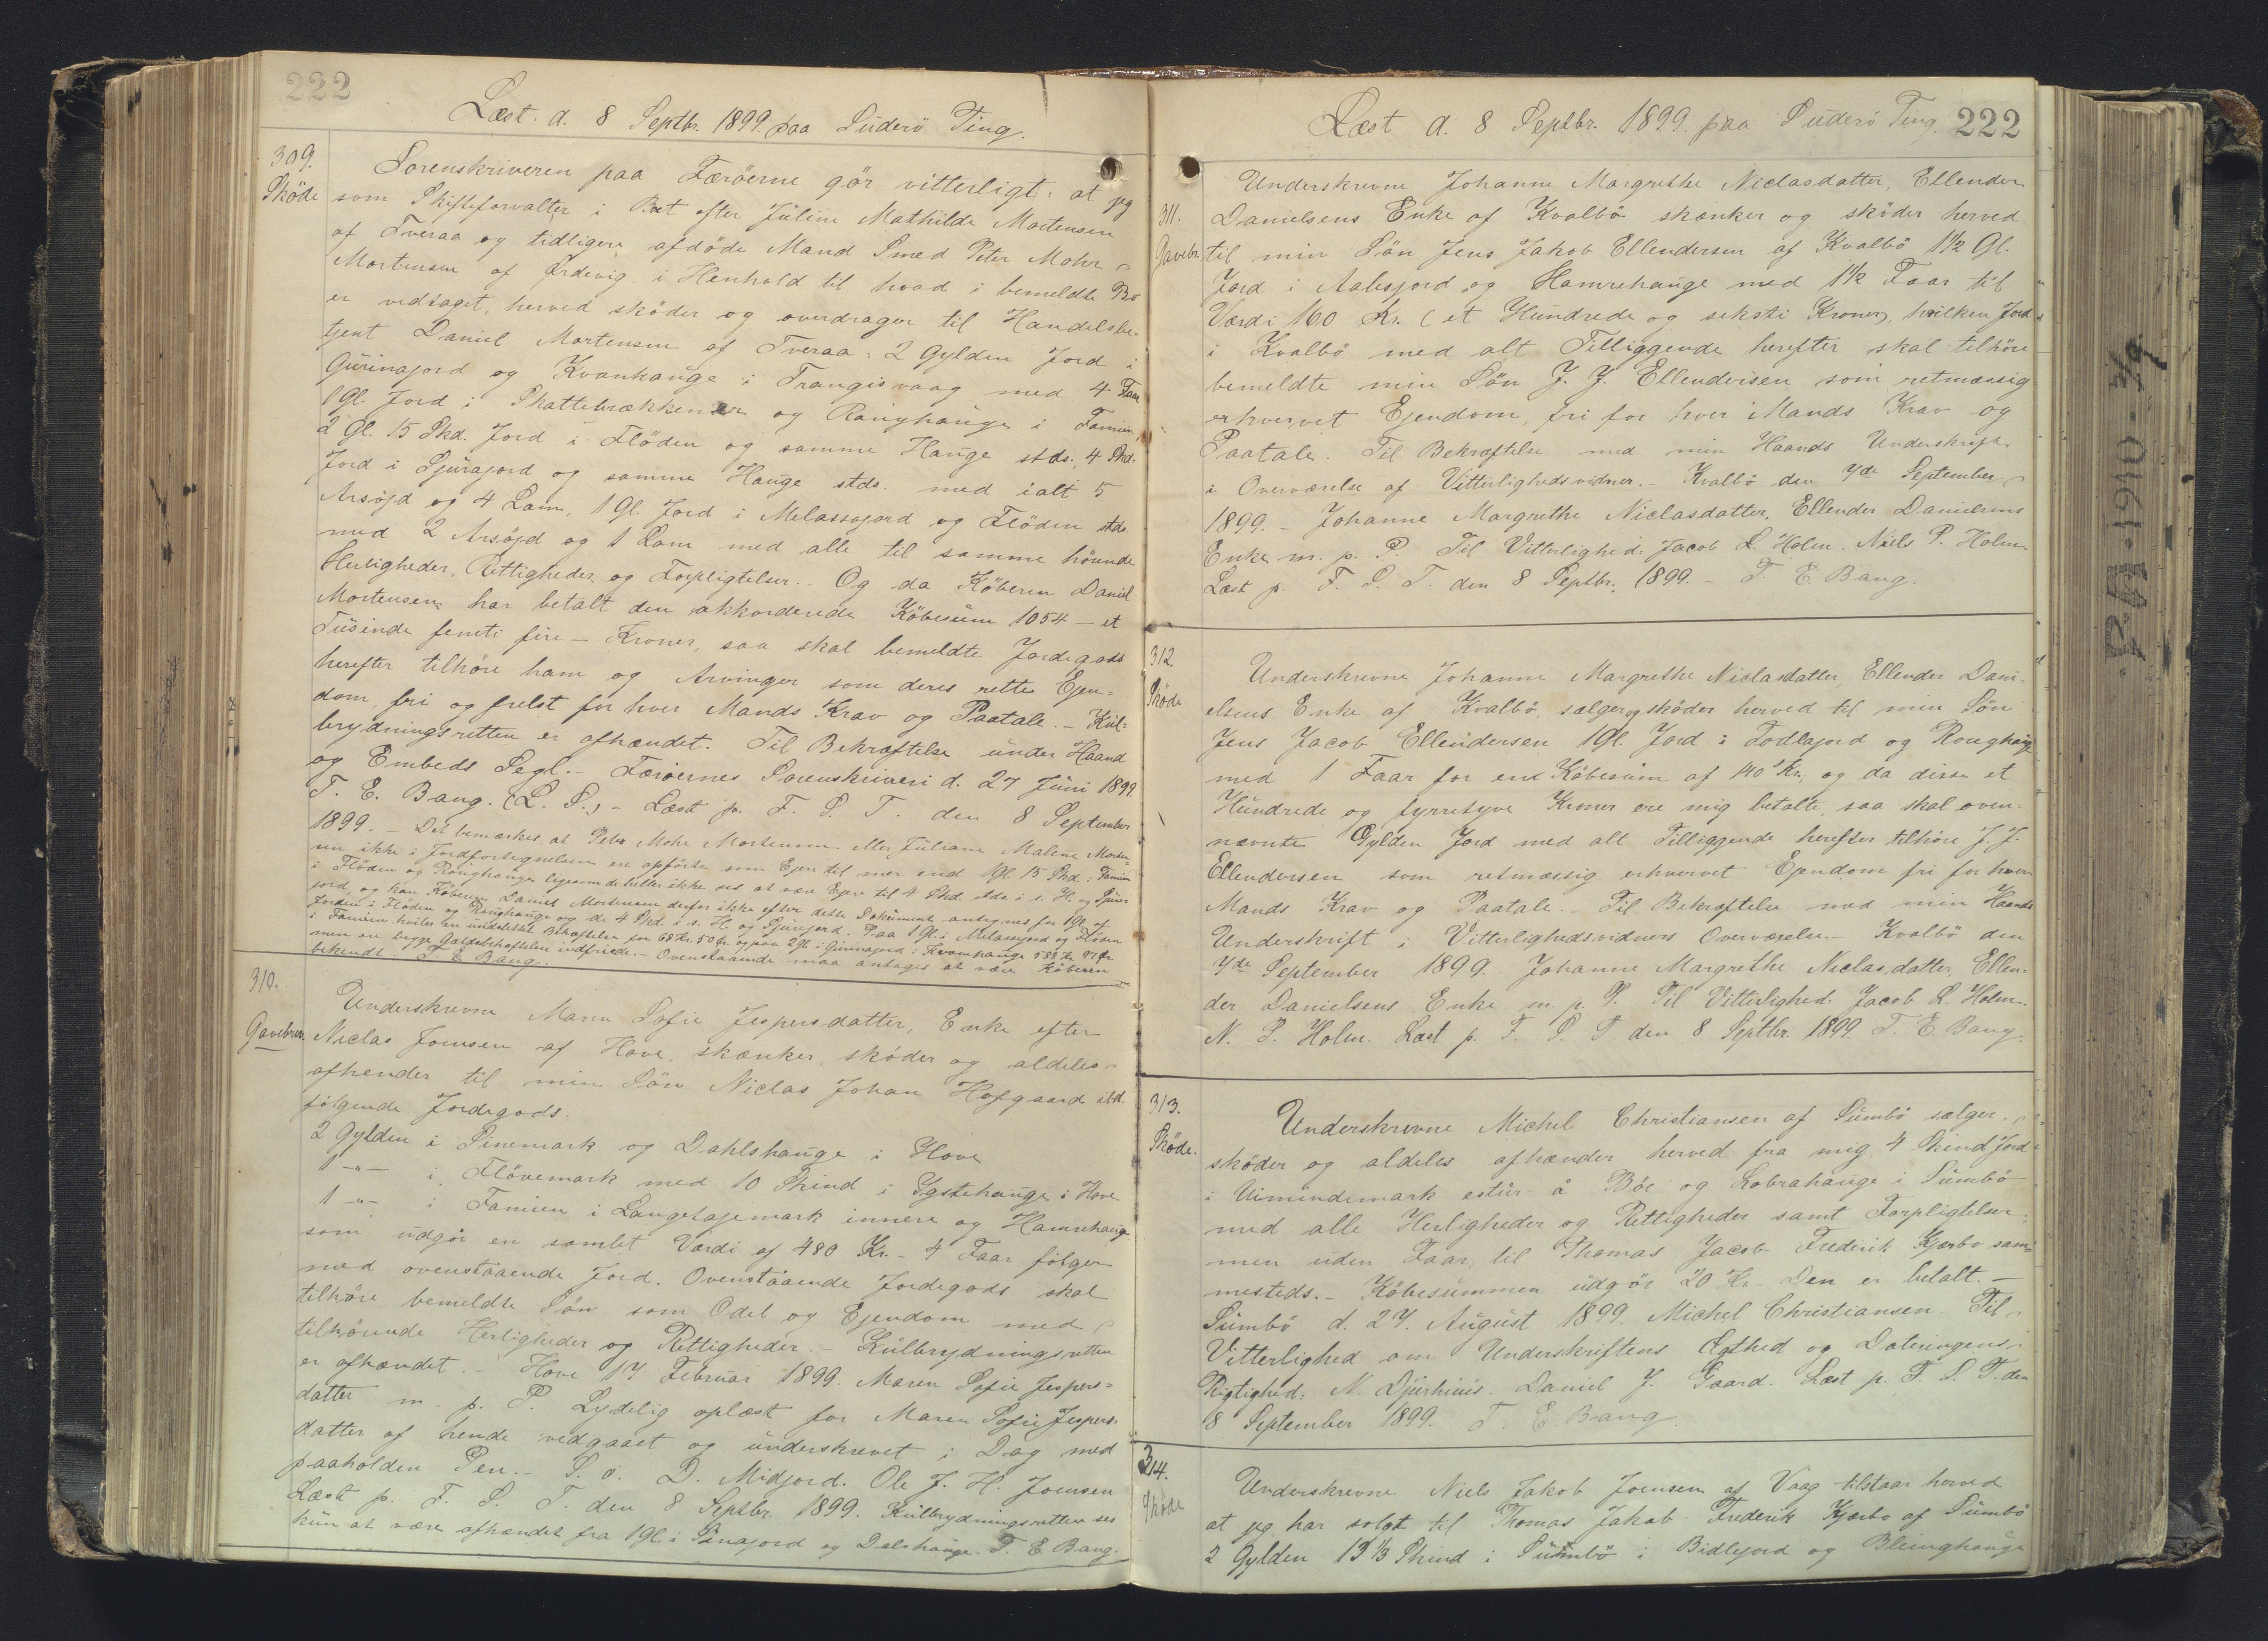 222
Læst. d. 8 Septbr. 1899. paa Suderö Ting.
309.
Sköde
Sorenskriveren paa Færöerne gör vitterligt: at jeg
som Skifteforvalter i Boet efter Juline Mathilde Mortensen
af Tveraa og tidligere afdöde Mand Smed Peter Mohr
Mortensen af Ördevig i Henhold til hvad i bemeldte Bo
er vedtaget, herved sköder og overdrager til Handelsbe-
tjent Daniel Mortensen af Tveraa: 2 Gylden Jord i
Gurinajord og Kvanhauge i Trangisvaag med 4 Faar
1 Gl. Jord i Skattebrækkender og Ranghauge i Famien,
2 Gl. 15 Skd. Jord i Flöden og samme Hauge stds., 4 Skd.
Jord i Sjurajord og samme Hauge stds. med ialt 5
Arsöjd og 4 Lam, 1 Gl. Jord i Melassajord og Flöden stds
med 2 Arsöjd og 1 Lam med alle til samme hörende
Herligheder, Rettigheder og Forpligtelser. Og da Köberen Daniel
Mortensen har betalt den akkorderede Köbesum 1054 - et
Tusinde femti fire - Kroner, saa skal bemeldte Jordegods
herefter tilhöre ham og Arvinger som deres rette Ejen-
dom, fri og frelst for hver Mands Krav og Paatale. - Kul-
brydningsretten er afhændet. Til Bekræftelse under Haand
og Embeds Segl. - Færöernes Sorenskriveri d. 27 Juni 1899.
T. E. Bang. (L. S.) - Læst p. F. S. T. den 8 September
1899. - Det bemærkes, at Peter Mohr Mortensen eller Juliane Malene Morten-
sen ikke i Jordfortegnelsen ere opförte som Ejere til mer end 1 Gl. 15 Skd. i Famien
i Flöden og Ranghauge ligesom de heller ikke ses at være Ejere til 4 Skd. stds. i s. H. og Sjur-
jord, og kan Köberen Daniel Mortensen derfor ikke efter dette Dokument antegnes for 1 Gl. af
Jorden i Flöden og Ranghauge og de 4 Skd. i s. H. og Sjurjord. Paa 1 Gl. i Melassajord og Flöden
i Famien hviler en undelelset Behæftelse for 68 Kr. 50 Ör. og paa 2 Gl. i Gurinajord i Kvanhauge 588 Kr. 97 Ör
men ere begge Gældsbehæftelser indfriede. - Ovenstaaende maa antages at være Köberen
bekendt. T. E. Bang.
310.
Gavebrev.
Underskrevne Maren Sofie Jespersdatter, Enke efter
Niclas Joensen af Hove, skænker, sköder og aldeles
afhender til min Sön Niclas Johan Hofgaard ibd.
fölgende Jordegods.
2 Gylden i Sinemark og Dahlshauge i Hove
1 -"- i Flövemark med 10 Skind i Ygstehauge i Hove
1 -"- i Famien i Langetajemark innere og Hamrehauge
som udgör en samlet Værdi af 480 Kr. - 4 Faar fölger
med ovenstaaende Jord. Ovenstaaende Jordegods skal
tilhöre bemeldte Sön som Odel og Ejendom med
tilhörende Herligheder og Rettigheder. - Kulbrydningsretten
er afhændet. - Hove 17 Februar 1899. Maren Sofie Jespers-
datter m. p. P. Lydelig oplæst for Maren Sofie Jespers-
datter af hende vedgaaet og underskrevet i Dag med
paaholden Pen. - S. o. D. Midjord. Ole J. H. Joensen
Læst p. F. S. T. den 8 Septbr. 1899. Kulbrydningsretten ses
kun at være afhændet fra 1 Gl. i Sinajord og Dalshauge. T. E. Bang.
Læst d. 8 Septbr. 1899. paa Suderö Ting.
222
311.
Gavebr.
Underskrevne Johanne Margrethe Niclasdatter, Ellender
Danielsens Enke af Kvalbö skænker og sköder herved
til min Sön Jens Jakob Ellendersen af Kvalbö 1 1/2 Gl.
Jord i Aabsjord og Hamrehauge med 1 1/2 Faar til
Værdi 160 Kr. (et Hundrede og seksti Kroner), hvilken Jord
i Kvalbö med alt Tilliggende herefter skal tilhöre
bemeldte min Sön J. J. Ellendersen som retmæssig
erhvervet Ejendom, fri for hver Mands Krav og
Paatale. Til Bekræftelse med min Haands Underskrift
i Overværelse af Vitterlighedsvidner. - Kvalbö den 7de September
1899. - Johanne Margrethe Niclasdatter, Ellender Danielsens
Enke m. p. P. Til Vitterlighed: Jacob L. Holm. Niels P. Holm.
Læst p. F. S. T. den 8 Septbr. 1899. - T. E. Bang.
312
Sköde
Underskrevne Johanne Margrethe Niclasdatter, Ellender Dani-
elsens Enke af Kvalbö, sælger og sköder herved til min Sön
Jens Jacob Ellendersen 1 Gl. Jord i Todlajord og Ronghauge
med 1 Faar for end Köbesum af 140 Kr., og da disse et
Hundrede og fyrretyve Kroner ere mig betalte, saa skal oven-
nævnte Gylden Jord med alt Tilliggende herefter tilhöre J. J.
Ellendersen som retmæssig erhvervet Ejendom fri for hver
Mands Krav og Paatale. - Til Bekræftelse med min Haands
Underskrift i Vitterlighedsvidners Overværelse. - Kvalbö den
7de September 1899. Johanne Margrethe Niclasdatter, Ellen-
der Danielsens Enke m. p. P. Til Vitterlighed: Jacob L. Holm.
N. P. Holm. Læst p. F. S. T. den 8 Septbr. 1899. T. E. Bang.
313.
Sköde.
Underskrevne Michel Christiansen af Sumbö sælger,
sköder og aldeles afhænder herved fra mig 4 Skind Jord
i Uimundemark estur å Böe og Lobrahauge i Sumbö
med alle Herligheder og Rettigheder samt Forpligtelser,
men uden Faar, til Thomas Jacob Frederik Kjærbo sam-
mesteds. - Köbesummen udgör 20 Kr. Den er betalt. -
Sumbö d. 27. August 1899. Michel Christiansen. Til
Vitterlighed om Underskriftens Ægthed og Dateringens
Rigtighed: N. Djurhuus. Daniel J. Gaard. Læst p. F. S. T. den
8 September 1899. T. E. Bang.
314.
Sköde
Underskrevne Niels Jakob Joensen af Vaag tilstaar herved
at jeg har solgt til Thomas Jakob Frederik Kjærbo af Sumbö
2 Gylden 13 1/3 Skind i Sumbö i Bidlejord og Bleinghauge